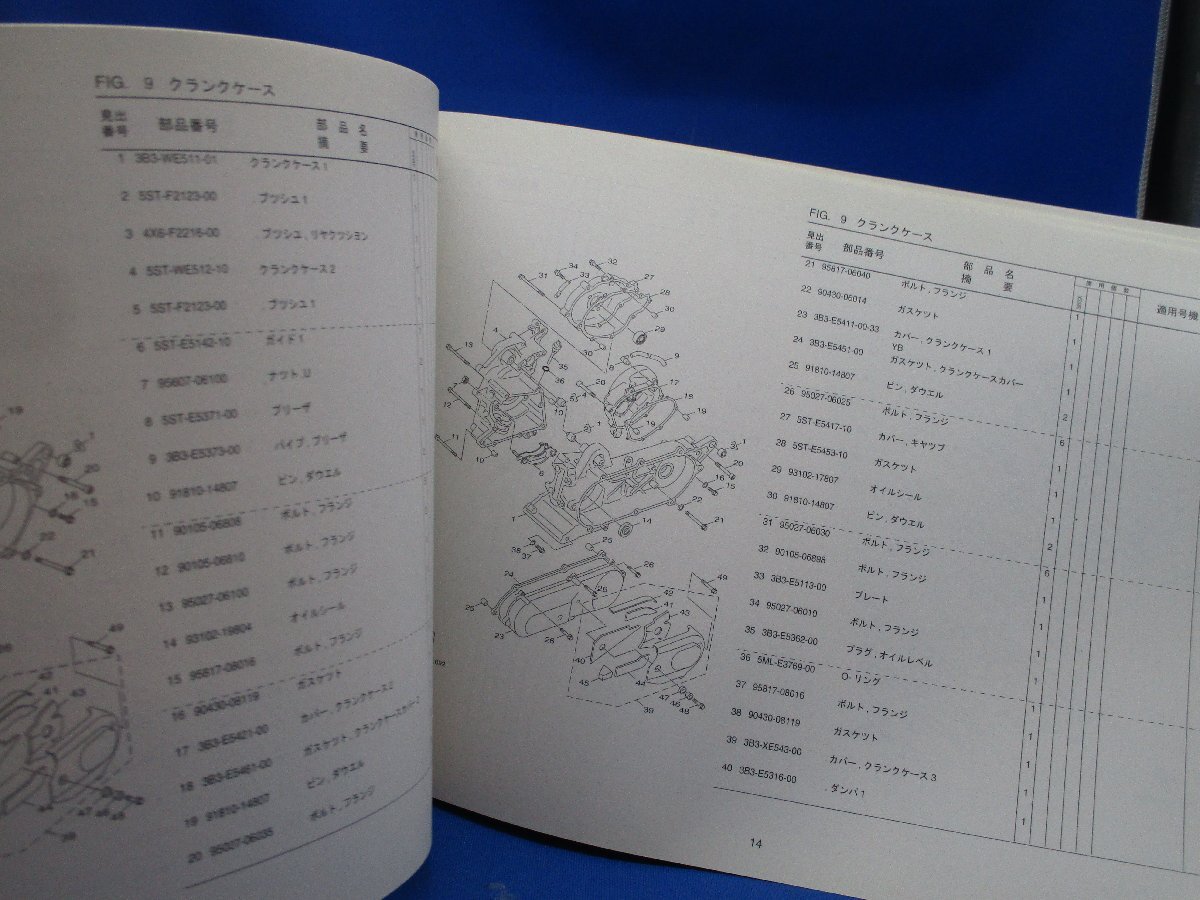 FIG. 9 クランクケース
見出番号 部品番号 部品名摘要
1 3B3-WE511-01 クランクケース1
2 5ST-F2123-00 .ブツシユ1
3 4X6-F2216-00 .ブツシユ,リヤクツシヨン
4 5ST-WE512-10 クランクケース2
5 5ST-F2123-00 .ブツシユ1
6 5ST-E5142-10 ガイド1
7 95607-06100 ナツト,U
8 5ST-E5371-00 ブリーザ
9 3B3-E5373-00 パイプ,ブリーザ
10 91810-14807 ピン,ダウエル
11 90105-06808 ボルト,フランジ
12 90105-06810 ボルト,フランジ
13 95027-06100 ボルト,フランジ
14 93102-19804 オイルシール
15 95817-08016 ボルト,フランジ
16 90430-08119 ガスケツト
17 3B3-E5421-00 カバー,クランクケース2
18 3B3-E5461-00 ガスケツト,クランクケースカバー2
19 91810-14807 ピン,ダウエル
20 95027-06035 ボルト,フランジ
FIG. 9 クランクケース
見出番号 部品番号 部品名摘要 適用個数 適用号機
21 95817-06040 ボルト,フランジ 1
22 90430-06014 ガスケツト 1
23 3B3-E5411-00-33 カバー,クランクケース1 1
YB
24 3B3-E5451-00 ガスケツト,クランクケースカバー 1
25 91810-14807 ピン,ダウエル 2
26 95027-06025 ボルト,フランジ 6
27 5ST-E5417-10 カバー,キヤツプ 1
28 5ST-E5453-10 ガスケツト 1
29 93102-17807 オイルシール 1
30 91810-14807 ピン,ダウエル 2
31 95027-06030 ボルト,フランジ 6
32 90105-06898 ボルト,フランジ 1
33 3B3-E5113-00 プレート 1
34 95027-06010 ボルト,フランジ 1
35 3B3-E5362-00 プラグ,オイルレベル 1
36 5ML-E3769-00 O-リング 1
37 95817-08016 ボルト,フランジ 1
38 90430-08119 ガスケツト 1
39 3B3-XE543-00 カバー,クランクケース3 1
40 3B3-E5316-00 .ダンパ1 1
14